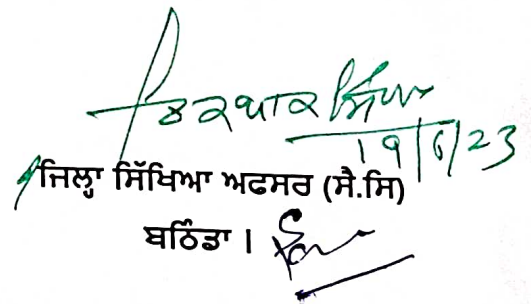 ਸਿੰਘ
19/6/23
ਜਿਲ੍ਹਾ ਸਿੱਖਿਆ ਅਫਸਰ (ਸੈ.ਸਿ)
ਬਠਿੰਡਾ ।